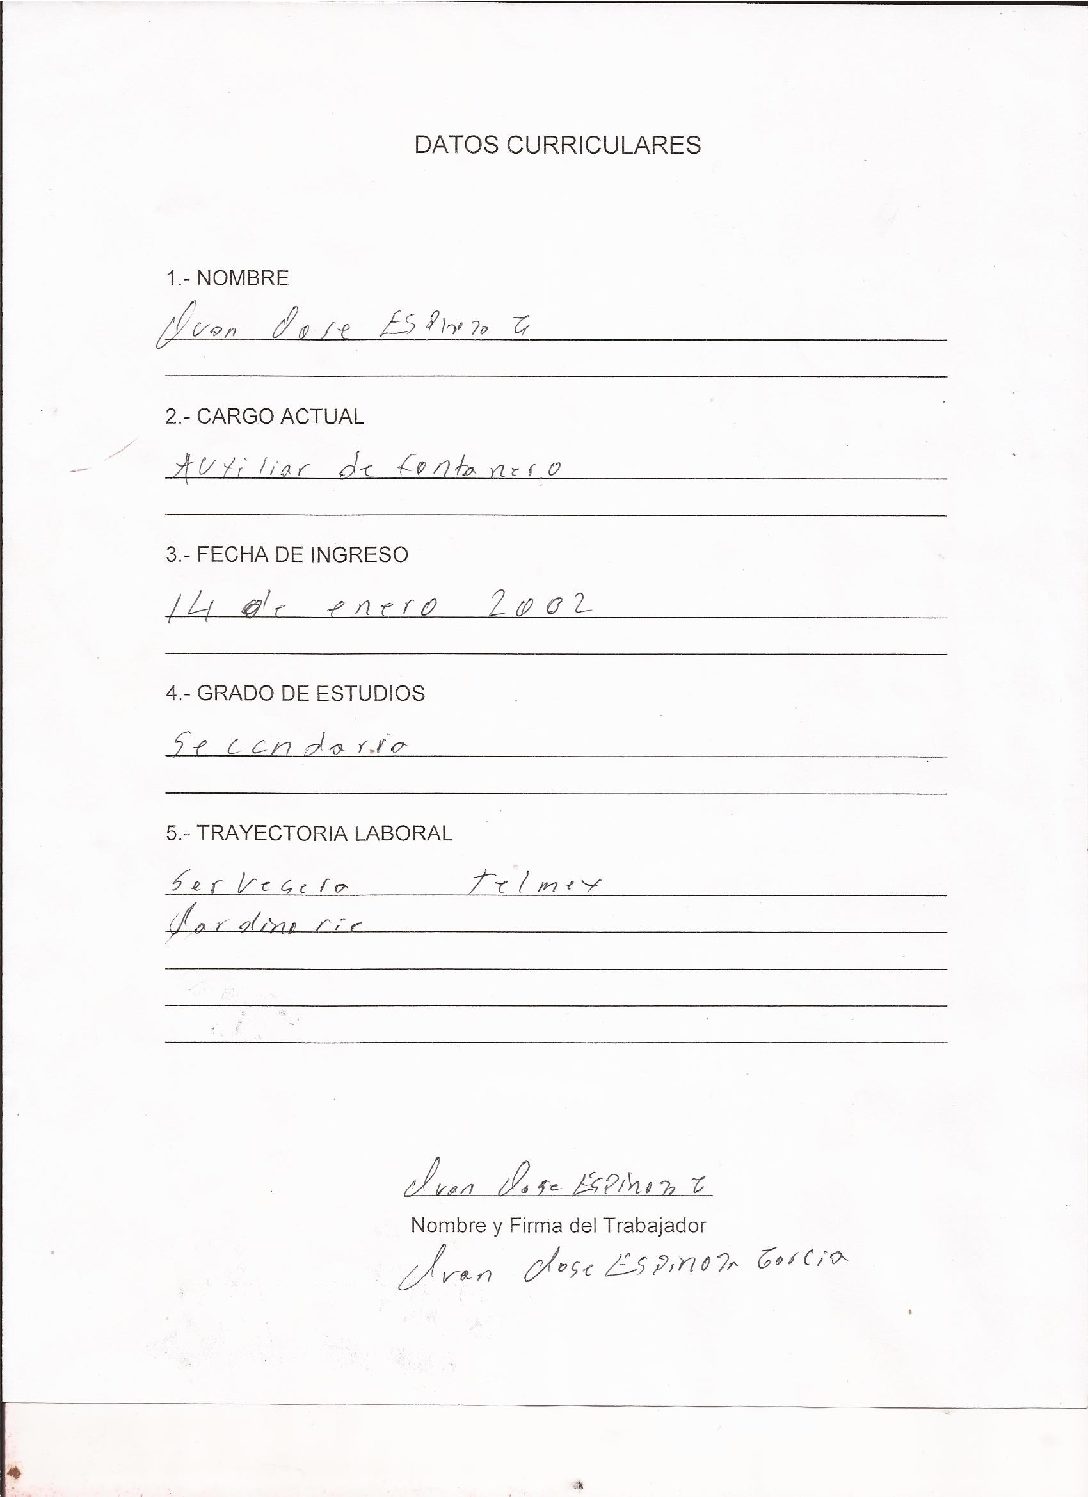 DATOS CURRICULARES
1.- NOMBRE
Juan Jose Espinoza G
2.- CARGO ACTUAL
Auxiliar de fontanero
3.- FECHA DE INGRESO
14 de enero 2002
4.- GRADO DE ESTUDIOS
Secundaria
5.- TRAYECTORIA LABORAL
Servecera Telmex
Jardineria
Juan Jose Espinoza G
Nombre y Firma del Trabajador
Juan Jose Espinoza Garcia